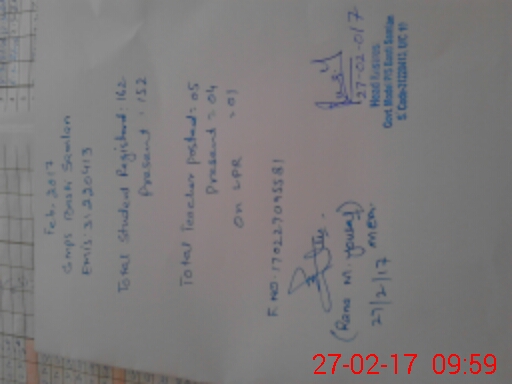 Feb. 2017
GMPS Basti Samlan
EMIS: 31220413
Total Student Registered: 162
Present : 152
Total Teacher posted = 05
Present = 04
On LPR = 01
F.NO. 170227095581
(Rana M. Yousaf)
27/2/17 MEA.
27-02-017
Head Mistress
Govt. Model P/S Basti Samlan
27-02-17 09:59